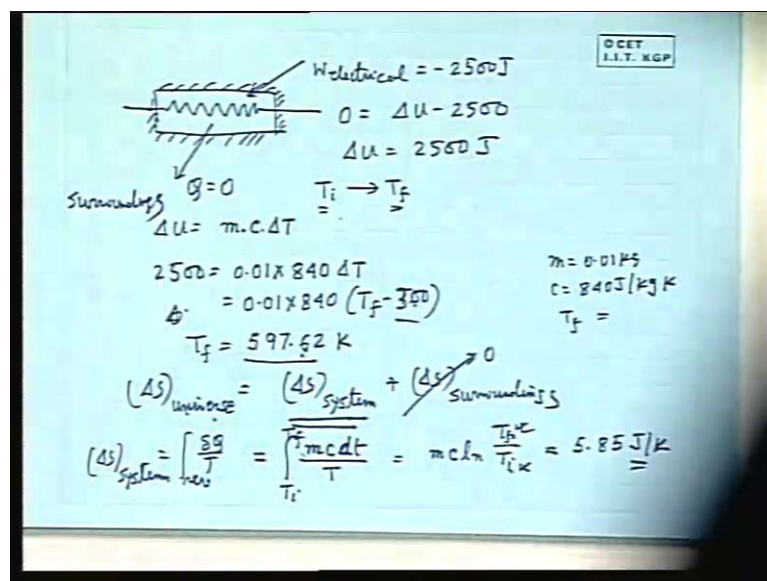 © CET
I.I.T. KGP
Welectrical = -2500J
0 = ΔU - 2500
ΔU = 2500 J
Surroundings Q=0 Ti → Tf
ΔU = m.c.ΔT
2500 = 0.01 x 840 ΔT
= 0.01 x 840 (Tf - 300)
m = 0.01 kg
c = 840 J/kg K
Tf =
Tf = 597.62 K
(ΔS)universe = (ΔS)system + (ΔS)surroundings 0
(ΔS)system = ∫rev δQ/T = ∫Ti Tf mcdt/T = mc ln Tf K/Ti K = 5.85 J/K